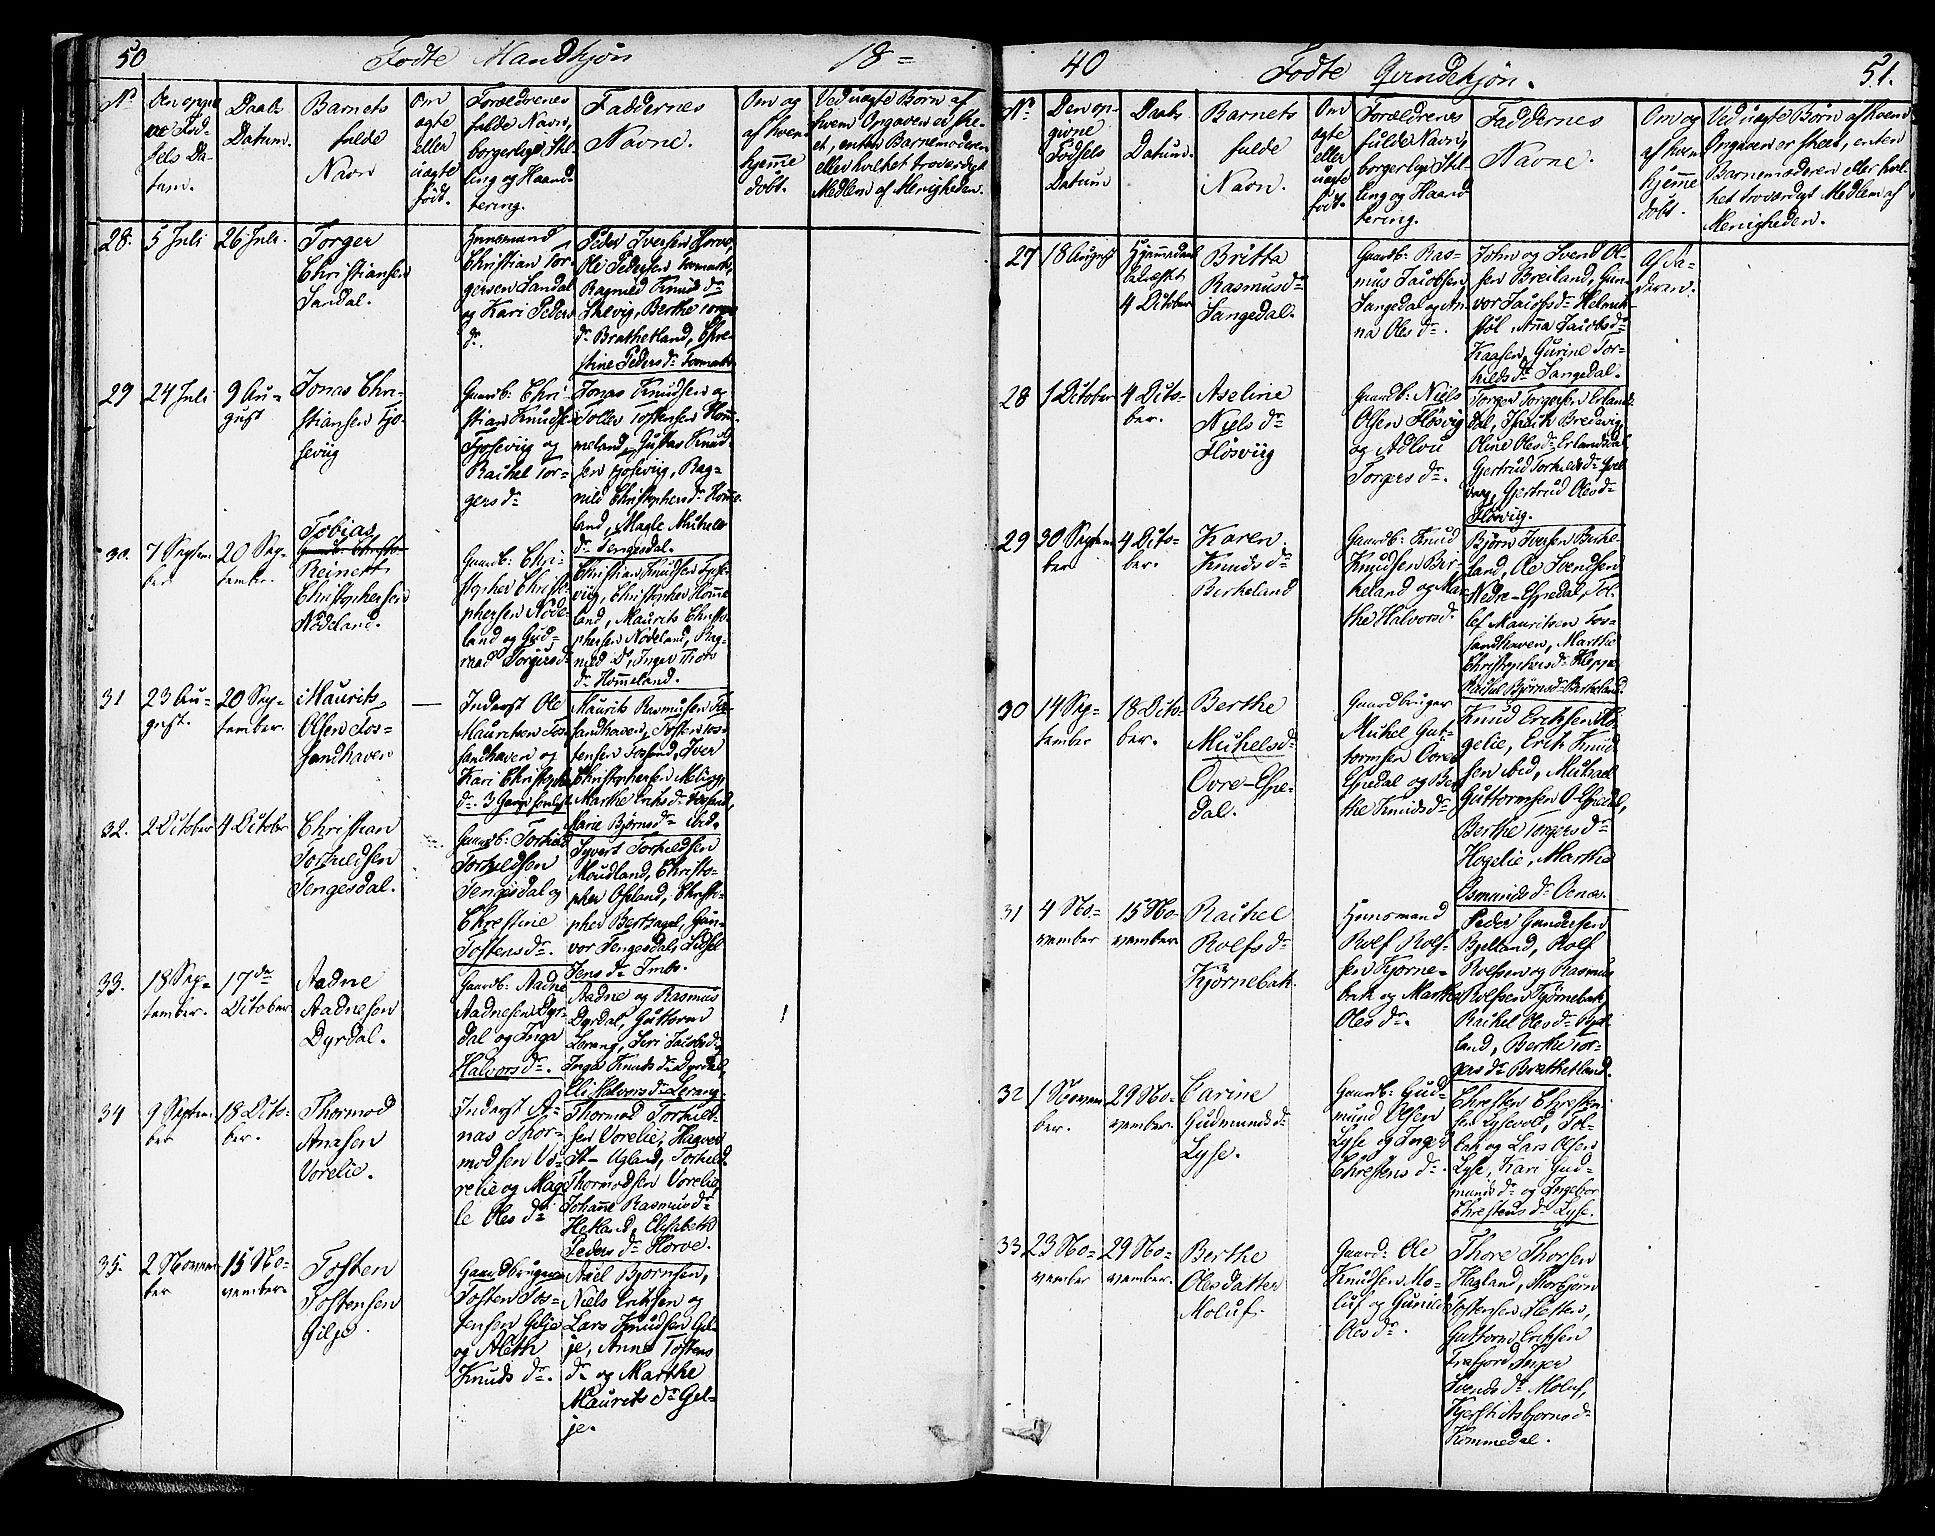 50
Fødte Mandkjøn
18=
No
Den opgi-
vne Fød-
sels Da-
tum.
Daabs
Datum.
Barnets
fulde
Navn
Om
ægte
eller
uægte
født.
Forældrenes
fulde Navn,
borgerlige Stil-
ling og Haand-
tering.
Faddernes
Navne.
Om og
af hvem
hjemme
døbt.
Ved uægte Børn af
hvem Opgaven er ske-
et, enten Barnemoderen
eller hvilket troværdigt
Medlem af Menigheden.
28.
5 Juli
26 Juli.
Torger
Christiansen
Sandal.
Huusmand
Christian Tor-
gersen Sandal
og Kari Peders
dr.
Peder Iversen Horve,
Ole Pedersen
Ragnild Knudsdr
Berthe Torgers
dr Brathetland, Chre-
stine Pedersdr
29
24 Juli
9 Au-
gust
Jonas Chri-
stiansen Fjo-
seviig
Gaardb: Chri-
stian Knudsen
Fjoseviig og
Rachel Tor-
gersdr
Jonas Knudsen og
Tollev Tostensen Hom-
meland, Gustav Knud-
sen Fjoseviig, Rag-
nild Christophersdr Homme-
land, Magle Michels
dr Tengesdal.
30.
7 Septem-
ber
20 Sep-
tember.
Tobias
Reinert
Christophersen
Nødeland.
Gaardb: Chri-
stopher Christo-
phersen Nøde-
land og Gud-
rud Torgersdr
Christian Knudsen Fjose-
viig, Christopher Homme-
land, Maurits Christo-
phersen Nødeland, Rag-
nild Do, Inger Tiors
dr Hommeland.
31
23 Au-
gust.
20 Sep-
tember.
Maurits
Olsen Fos-
sandhaven
—
Inderst Ole
Mauritsen Fos-
sandhaven og
Kari Christophers
dr. 3 Gange
Maurits Rasmusen Fos-
sandhaven, Tosten Tos-
tensen Fossand, Iver
Christophersen
Marthe Eriksdr Fossand,
Marie Bjørnsdr ibid.
32.
2 October
4 October
Christian
Torkildsen
Tengesdal.
Gaardb: Torkild
Torkildsen
Tengesdal og
Chrestine
Tostensdr.
Syvert Torkildsen
Moudland, Christo-
pher Ofeland, Christo-
pher Bertnagel, Gun-
vor Tengesdal, Sidsel
Jensdr Imbs.
33.
18 Sep-
tember.
17de
October
Aadne
Aadnesen
Dyrdal.
Gaardb: Aadne
Aadnesen Dyr-
dal og Inga
Halvorsdr.
Aadne og Rasmus
Dyrdal, Guttorm
Lerang, Siri Jacobsdr,
Inger Knudsdr Dyrdal,
Eli Halvorsdr Lerang.
34
9 Septem-
ber
18 Octo-
ber.
Thormod
Anasen
Vorelie.
Inderst A-
nas Thor-
modsen Vo-
relie og Mag-
le Olesdr
Thormod Torkild-
sen Vorelie, Hagver
St- Ugland, Torkild
Thormodsen Vorelie,
Johanne Rasmusdr
Hetland, Elisabeth
Pedersdr Horve.
35.
2 Novem-
ber
15 No-
vember.
Tosten
Tostensen
Gilje.
Gaardbruger
Tosten Tos-
tensen Gilje
og Aleth
Knudsdr.
Axel Bjørnsen,
Niels Eriksen og
Lars Knudsen Gil-
je, Anna Tostens
dr og Marthe
Mauritsdr Gil-
je.
40
Fødte Qvindekjøn.
51.
No
Den op-
givne
Fødsels
Datum
Daabs
Datum.
Barnets
fulde
Navn.
Om
ægte
eller
uægte
født.
Forældrenes
fulde Navn,
borgerlige Stil-
ling og Haand-
tering.
Faddernes
Navne.
Om og
af hvem
hjemme
døbt.
Ved uægte Børn af hvem
Opgaven er skeet, enten
Barnemoderen eller hvil-
ket troværdigt Medlem af
Menigheden.
27
18 August
Hjemmedaab
4 October
Britta
Rasmusdr
Sangedal.
Gaardb: Ras-
mus Jacobsen
Sangedal og An-
na Olesdr.
John og Svend Ol-
sen Breiland, Gun-
vor Jacobsdr Helmik-
støl, Anna Jacobsdr
Kaasen, Gurine Tor-
kildsdr Sangedal.
Af Fa-
deren.
28
1 October
4 Octo-
ber.
Aseline
Nielsdr
Fløsviig
Gaardb: Niels
Olsen Fløsvig
og Adlou
Torgersdr.
Torger Torgersen Erlands-
dal, Bredevig,
Oline Olesdr Erlandsdal,
Gjertrud Torkildsdr
Gjertrud Olesdr
Fløsviig.
29
30 Septem-
ber
4 Octo-
ber.
Karen
Knudsdr
Berkeland
Gaardb: Knud
Knudsen Ber-
keland og Mar-
the Halvorsdr.
Bjørn Iversen Berke-
land, Ole Svendsen
Nedre-Espedal, Tol-
lef Mauritsen Fos-
sandhaven, Marthe
Christophersdr
Rachel Bjørnsdr Berkeland.
30
14 Sep-
tember
18 Octo-
ber.
Berthe
Michelsdr
Øvre-Espe-
dal.
Gaardbruger
Michel Gut-
tormsen Øvre
Espedal og Ber-
the Knudsdr
Knud Eriksen Ho-
gelie, Erik Knud-
sen ibid, Michael
Guttormsen O-Espedal,
Berthe Torgersdr
Hogelie, Marthe
Osmundsdr Oenæs.
31
4 No-
vember
15 No-
vember.
Rachel
Rolfsdr
Kjørnebak.
Huusmand
Rolf Rolf-
sen Kjørne-
bak og Marthe
Olesdr.
Peder Gundersen
Bjelland, Rolf
Rolfsen og Rasmus
Rolfsen Kjørnebak,
Rachel Olesdr
land, Berthe Tor-
gersdr Brathetland.
32
1 Novem-
ber.
29 No-
vember.
Carine
Gudmundsdr
Lyse.
Gaardb: Gud-
mund Olsen
Lyse og Inger
Chrestensdr.
Chresten Chresten-
sen Lysevold, Tol-
lak og Lars Olsen
Lyse, Kari Gud-
mundsdr og Ingebor
Chrestensdr Lyse.
33
23 No-
vember
29 No-
vember.
Berthe
Olesdatter
Moluf.
Gaardb: Ole
Knudsen Mo-
luf og Gunild
Olesdr.
Thore Thorsen
Hagland, Thorbjørn
Tostensen Flesten,
Guttorm Eriksen
Frafjord, Inger
Svendsdr Moluf,
Kjersti Asbjørnsdr
Kommedal.